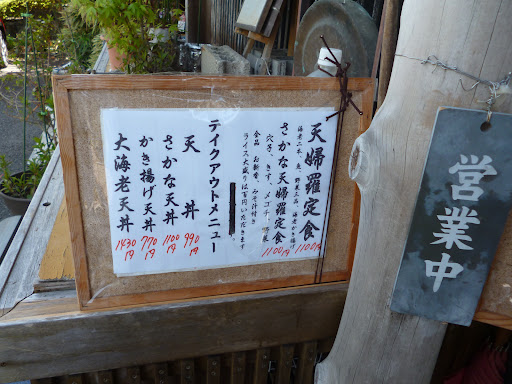 天婦羅定食 1100円
海老二本、魚、野菜三品、海老かき揚げ
さかな天婦羅定食 1100円
穴子、きす、メゴチ、野菜
全品 お新香、みそ汁付き
ライス大盛りは百円いただきます
テイクアウトメニュー
天丼 990円
さかな天丼 1100円
かき揚げ天丼 770円
大海老天丼 1430円
営業中